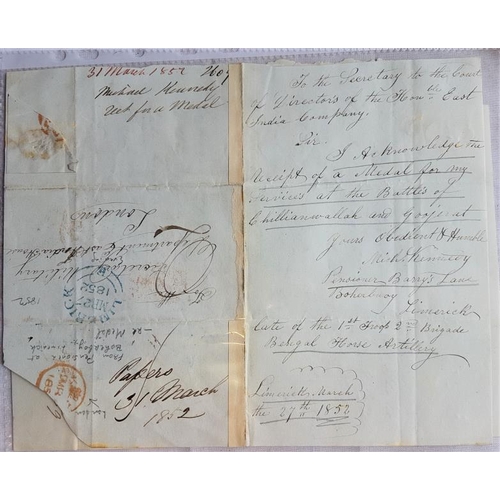 31 March 1852
Michael Kennedy
for a Medal
Papers
31 March
1852
To the Secretary to the Court
of Directors of the Honble East
India Company.
Sir.
I Acknowledge the
Receipt of a Medal for my
Services at the Battles of
Chillianwallah and Goojerat
Yours Obedient & Humble
Michl Kennedy
Pensioner Barrys Lane
Limerick
Late of the 1st Troop 2nd Brigade
Bengal Horse Artillery
Limerick March
the 27th 1852
London
Department East India House
Military
1852
LIMERICK
1852